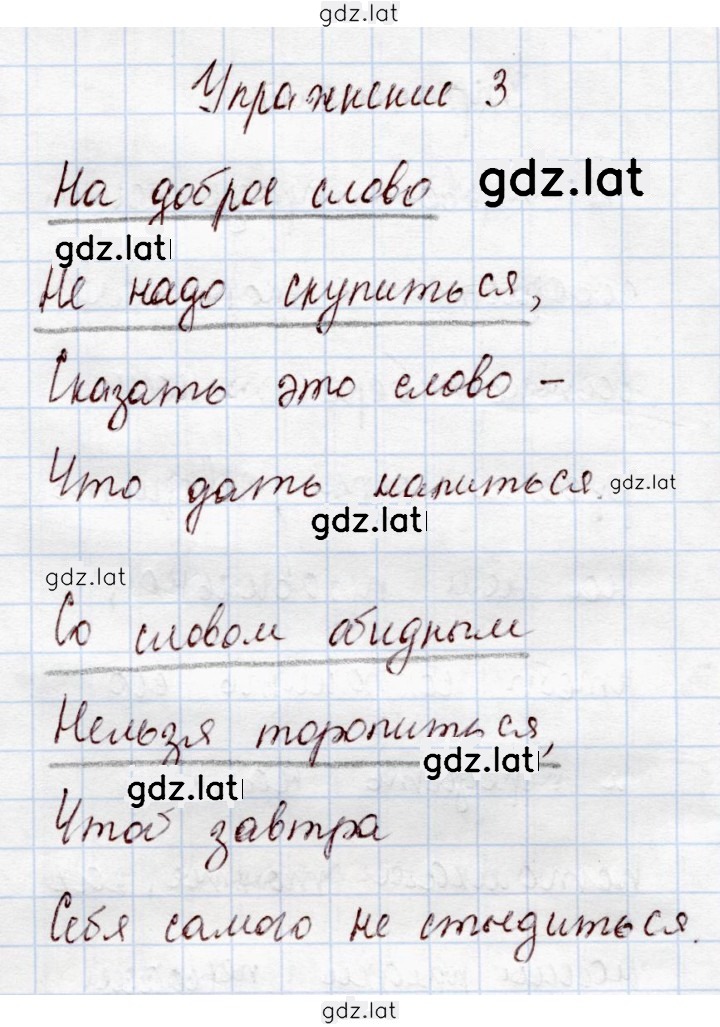 gdz.lat
Упражнение 3
На доброе слово
gdz.lat
gdz.lat
Не надо скупиться,
Сказать это слово –
Что дать напиться.
gdz.lat
gdz.lat
gdz.lat
Со словом обидным
Нельзя торопиться,
gdz.lat
gdz.lat
Чтоб завтра
Себя самого не стыдиться.
gdz.lat